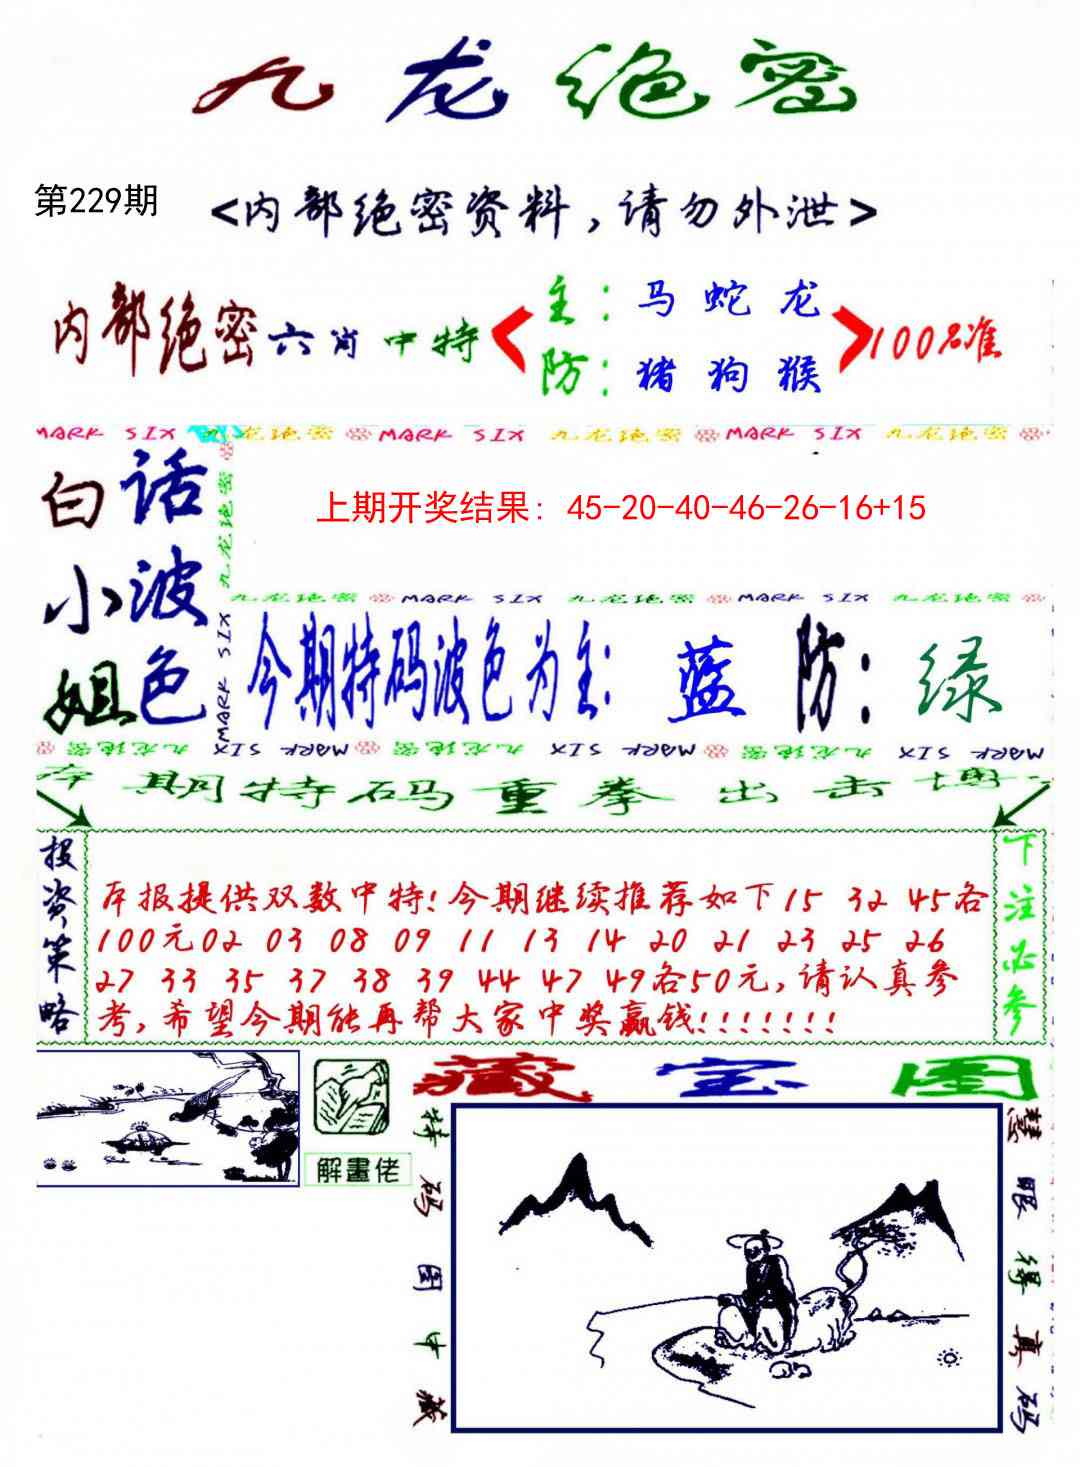 九龙绝密
第229期
<内部绝密资料,请勿外泄>
内部绝密六肖中特
主:马蛇龙
防:猪狗猴
100%准
MARK SIX 九龙绝密 MARK SIX 九龙绝密 MARK SIX 九龙绝密
白话
小波
姐色
九龙绝密
MARK SIX
上期开奖结果: 45-20-40-46-26-16+15
九龙绝密 MARK SIX 九龙绝密 MARK SIX 九龙绝密
今期特码波色为主: 蓝 防: 绿
九龙绝密 MARK SIX 九龙绝密 MARK SIX 九龙绝密 MARK SIX
本期特码重拳出击博一
投资策略
本报提供双数中特!今期继续推荐如下15 32 45各
100元02 03 08 09 11 13 14 20 21 23 25 26
27 33 35 37 38 39 44 47 49各50元,请认真参
考,希望今期能再帮大家中奖赢钱!!!!!!!
下注必参
解畫佬
藏宝图
特码图中藏
慧眼得真码